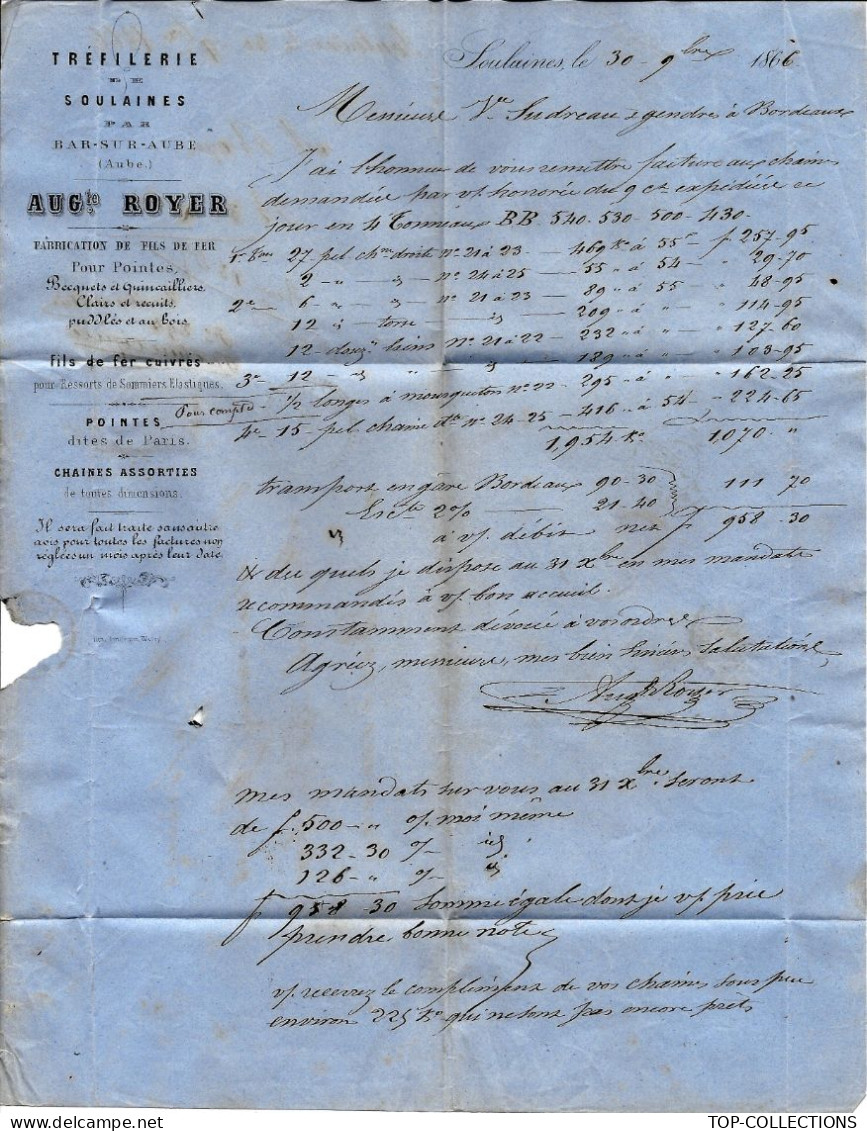 TRÉFILERIE
DE
SOULAINES
PAR
BAR-SUR-AUBE
(Aube.)
AUG.te ROYER
FABRICATION DE FILS DE FER
Pour Pointes,
Becquets et Quincailliers,
Clairs et recuits,
puddlés et au bois.
Fils de fer cuivrés
pour Ressorts de Sommiers Elastiques.
POINTES
dites de Paris.
CHAINES ASSORTIES
de toutes dimensions.
Il sera fait traite sans autre
avis pour toutes les factures non
réglées un mois après leur date.
Soulaines, le 30 9bre 1866
Messieurs Ve Sudreau & gendre à Bordeaux
J'ai l'honneur de vous remettre facture aux chaines
demandées par v/. honorée du 9 ct expédiées ce
jour en 4 Tonneaux BB. 540-530-500-430-
27 pel chne droite no 21 à 23 - 469 Ko à 55 f. 257-95
2 " " id - no 24 à 25 - 55 " à 54 - " 29-70
2e - 6 " " id - no 21 à 23 - 89 " à 55 - " 48-95
12 id - torse - id - 209 " à " - " 114-95
12 douzn liens no 21 à 22 - 232 " à " - " 127-60
3e - 12 - id - id - 189 " à " - " 103-95
Pour complt - 1/2 longes à mousqueton no 22 - 295 " à " - " 162-25
4e 15 - pel chaine dte no 24-25 - 416 " à 54 - - 224-65
1,954 Ko 1,070 "
transport en gare Bordeaux 90-30
Escte 2% 21-40 111 70
à v/. débit net f 958-30
& des quels je dispose au 31 Xbre en mes mandats
recommandés à v/. bon accueil.
Constamment dévoué à vos ordres
Agréez, messieurs, mes bien sincères salutations
Augte Royer
mes mandats sur vous au 31 Xbre seront
de f. 500- " o/. moi même
332-30 o/- id
126- " o/- id
f 958 30 Somme égale dont je v/. prie
prendre bonne note
v/. recevrez le compliment de vos chaines sous peu
environ 225 Ko qui ne sont pas encore prêts
TOP-COLLECTIONS